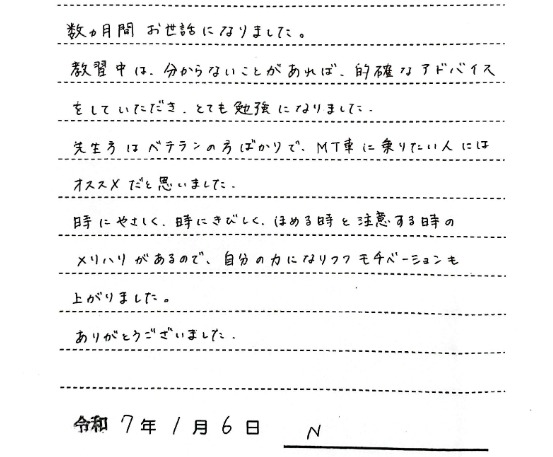 数ヵ月間 お世話になりました。
教習中は、分からないことがあれば、的確なアドバイス
をしていただき、とても勉強になりました。
先生方はベテランの方ばかりで、MT車に乗りたい人には
オススメだと思いました。
時にやさしく、時にきびしく、ほめる時と注意する時の
メリハリがあるので、自分の力になりつつモチベーションも
上がりました。
ありがとうございました。
令和 7年 1月 6日 N